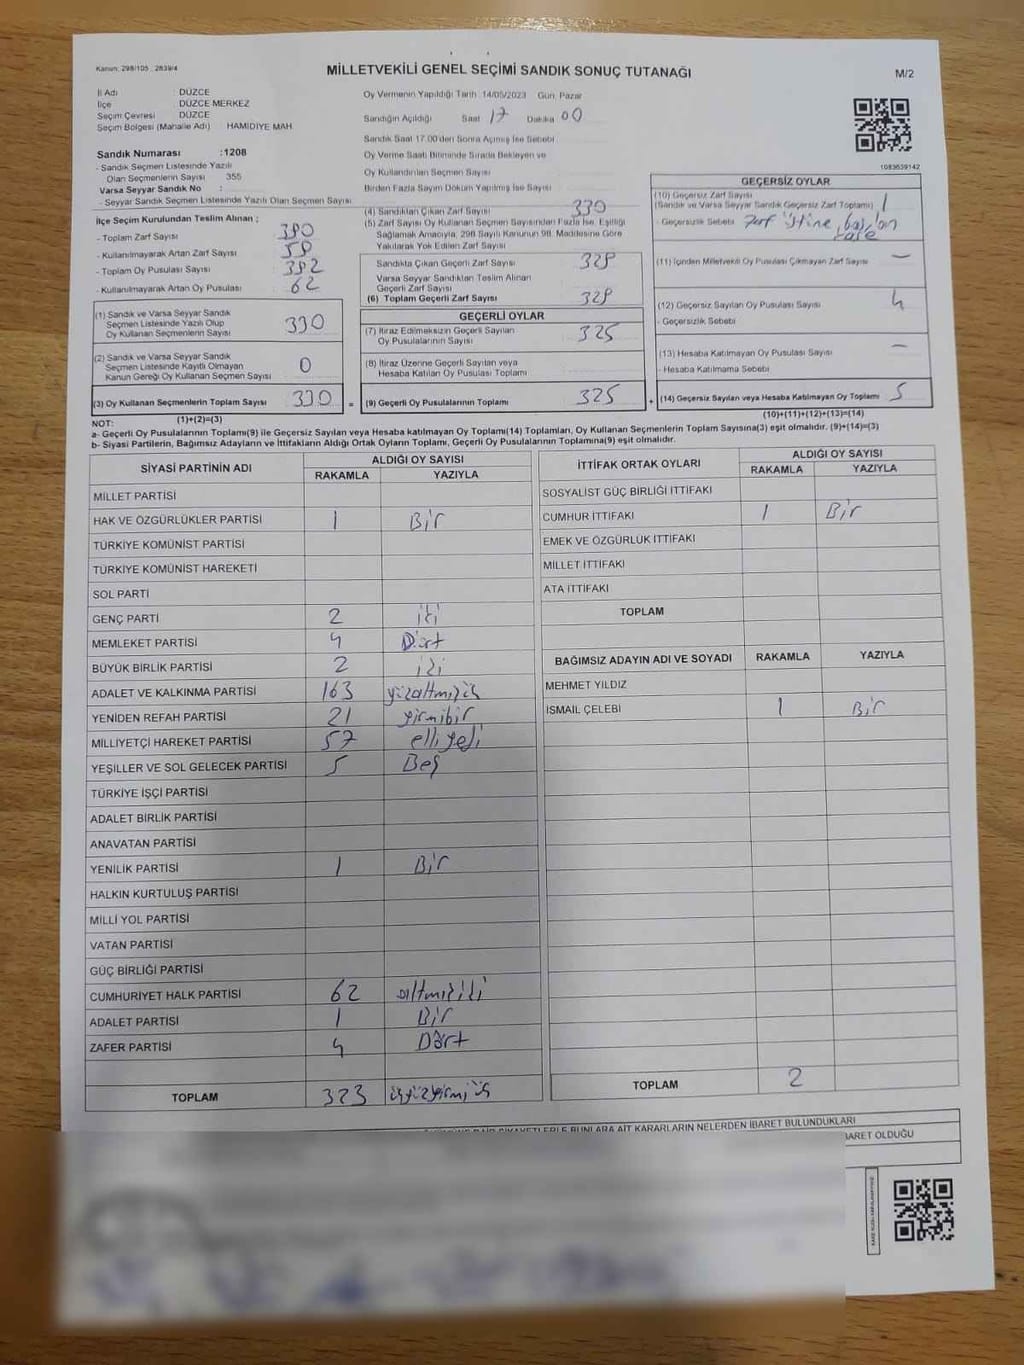 Kanun: 298/105 , 2839/4
MİLLETVEKİLİ GENEL SEÇİMİ SANDIK SONUÇ TUTANAĞI
M/2
İl Adı : DÜZCE
İlçe DÜZCE MERKEZ
Seçim Çevresi DÜZCE
Seçim Bölgesi (Mahalle Adı) : HAMİDİYE MAH.
Sandık Numarası :1208
- Sandık Seçmen Listesinde Yazılı
Olan Seçmenlerin Sayısı 355
Varsa Seyyar Sandık No :
- Seyyar Sandık Seçmen Listesinde Yazılı Olan Seçmen Sayısı
Oy Vermenin Yapıldığı Tarih :14/05/2023 Gün: Pazar
Sandığın Açıldığı Saat 17 Dakika 00
Sandık Saat 17.00'den Sonra Açılmış İse Sebebi
Oy Verme Saati Bitiminde Sırada Bekleyen ve
Oy Kullandırılan Seçmen Sayısı
Birden Fazla Sayım Döküm Yapılmış İse Sayısı
1083639142
İlçe Seçim Kurulundan Teslim Alınan ;
- Toplam Zarf Sayısı 380
- Kullanılmayarak Artan Zarf Sayısı
- Toplam Oy Pusulası Sayısı 392
- Kullanılmayarak Artan Oy Pusulası 62
(1) Sandık ve Varsa Seyyar Sandık
Seçmen Listesinde Yazılı Olup
Oy Kullanan Seçmenlerin Sayısı 330
(2) Sandık ve Varsa Seyyar Sandık
Seçmen Listesinde Kayıtlı Olmayan
Kanun Gereği Oy Kullanan Seçmen Sayısı 0
(3) Oy Kullanan Seçmenlerin Toplam Sayısı 330
(1)+(2)=(3)
(4) Sandıktan Çıkan Zarf Sayısı 330
(5) Zarf Sayısı Oy Kullanan Seçmen Sayısından Fazla İse, Eşitliği
Sağlamak Amacıyla, 298 Sayılı Kanunun 98. Maddesine Göre
Yakılarak Yok Edilen Zarf Sayısı
Sandıkta Çıkan Geçerli Zarf Sayısı 329
Varsa Seyyar Sandıktan Teslim Alınan
Geçerli Zarf Sayısı
(6) Toplam Geçerli Zarf Sayısı 329
GEÇERLİ OYLAR
(7) İtiraz Edilmeksizin Geçerli Sayılan
Oy Pusulalarının Sayısı 325
(8) İtiraz Üzerine Geçerli Sayılan veya
Hesaba Katılan Oy Pusulası Toplamı
= (9) Geçerli Oy Pusulalarının Toplamı 325
GEÇERSİZ OYLAR
(10) Geçersiz Zarf Sayısı
(Sandık ve Varsa Seyyar Sandık Geçersiz Zarf Toplamı) 1
- Geçersizlik Sebebi Zarf üstine basılan
kaşe
(11) İçinden Milletvekili Oy Pusulası Çıkmayan Zarf Sayısı —
(12) Geçersiz Sayılan Oy Pusulası Sayısı 4
- Geçersizlik Sebebi
(13) Hesaba Katılmayan Oy Pusulası Sayısı —
- Hesaba Katılmama Sebebi
+ (14) Geçersiz Sayılan veya Hesaba Katılmayan Oy Toplamı 5
(10)+(11)+(12)+(13)=(14)
NOT:
a- Geçerli Oy Pusulalarının Toplamı(9) ile Geçersiz Sayılan veya Hesaba katılmayan Oy Toplamı(14) Toplamları, Oy Kullanan Seçmenlerin Toplam Sayısına(3) eşit olmalıdır. (9)+(14)=(3)
b- Siyasi Partilerin, Bağımsız Adayların ve İttifakların Aldığı Ortak Oyların Toplamı, Geçerli Oy Pusulalarının Toplamına(9) eşit olmalıdır.
SİYASİ PARTİNİN ADI ALDIĞI OY SAYISI
RAKAMLA YAZIYLA
MİLLET PARTİSİ
HAK VE ÖZGÜRLÜKLER PARTİSİ 1 Bir
TÜRKİYE KOMÜNİST PARTİSİ
TÜRKİYE KOMÜNİST HAREKETİ
SOL PARTİ
GENÇ PARTİ 2 iki
MEMLEKET PARTİSİ 4 Dört
BÜYÜK BİRLİK PARTİSİ 2 iki
ADALET VE KALKINMA PARTİSİ 163 yüzaltmışüç
YENİDEN REFAH PARTİSİ 21 yirmibir
MİLLİYETÇİ HAREKET PARTİSİ 57 elliyedi
YEŞİLLER VE SOL GELECEK PARTİSİ 5 Beş
TÜRKİYE İŞÇİ PARTİSİ
ADALET BİRLİK PARTİSİ
ANAVATAN PARTİSİ
YENİLİK PARTİSİ 1 Bir
HALKIN KURTULUŞ PARTİSİ
MİLLİ YOL PARTİSİ
VATAN PARTİSİ
GÜÇ BİRLİĞİ PARTİSİ
CUMHURİYET HALK PARTİSİ 62 altmışiki
ADALET PARTİSİ 1 Bir
ZAFER PARTİSİ 4 Dört
TOPLAM 323 üçyüzyirmiüç
İTTİFAK ORTAK OYLARI ALDIĞI OY SAYISI
RAKAMLA YAZIYLA
SOSYALİST GÜÇ BİRLİĞİ İTTİFAKI
CUMHUR İTTİFAKI 1 Bir
EMEK VE ÖZGÜRLÜK İTTİFAKI
MİLLET İTTİFAKI
ATA İTTİFAKI
TOPLAM
BAĞIMSIZ ADAYIN ADI VE SOYADI RAKAMLA YAZIYLA
MEHMET YILDIZ
İSMAİL ÇELEBİ 1 Bir
TOPLAM 2
BUNLARA AİT KARARLARIN NELERDEN İBARET BULUNDUKLARI
İBARET OLDUĞU